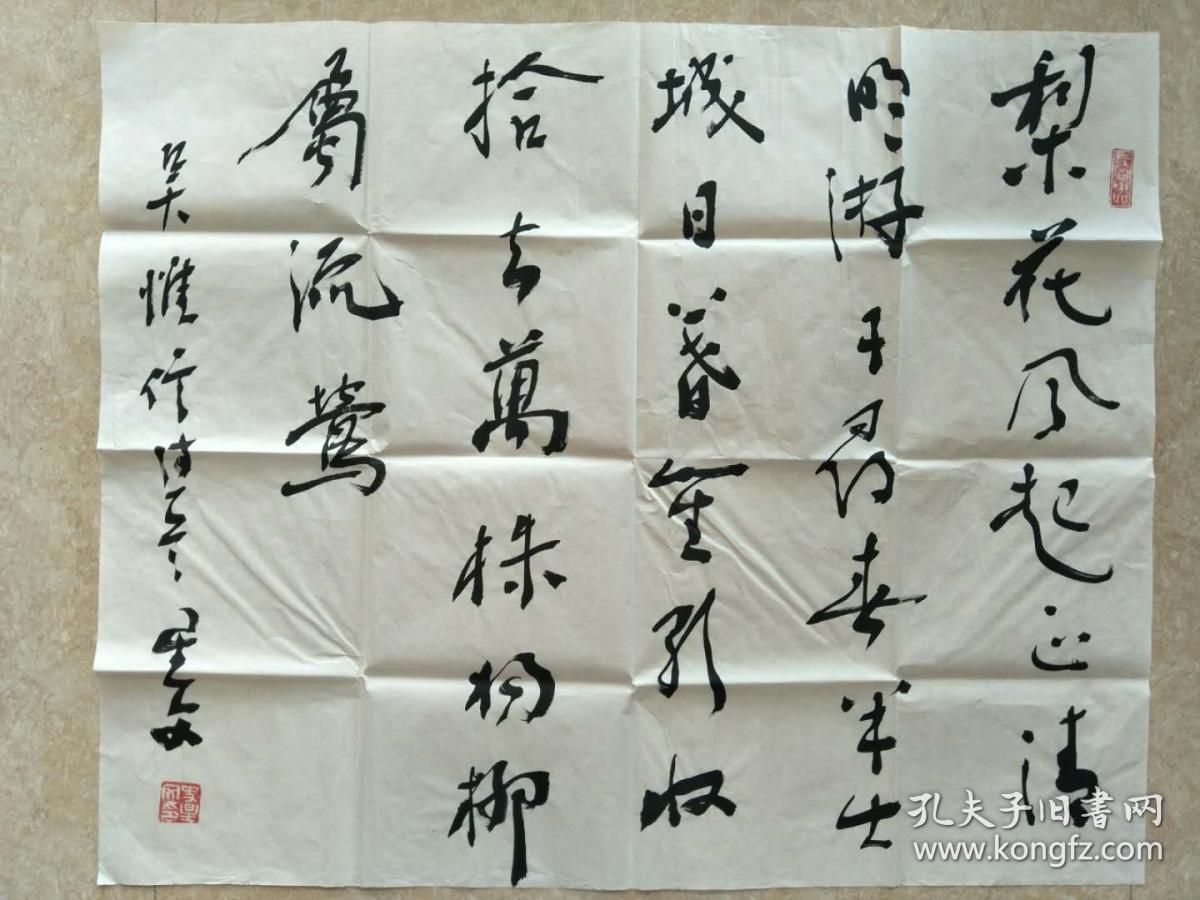 梨花风起正清
明游子寻春半出
城日暮笙歌收
拾去萬株楊柳
屬流鶯
吴惟信詩一首
孔夫子旧书网
www.kongfz.com